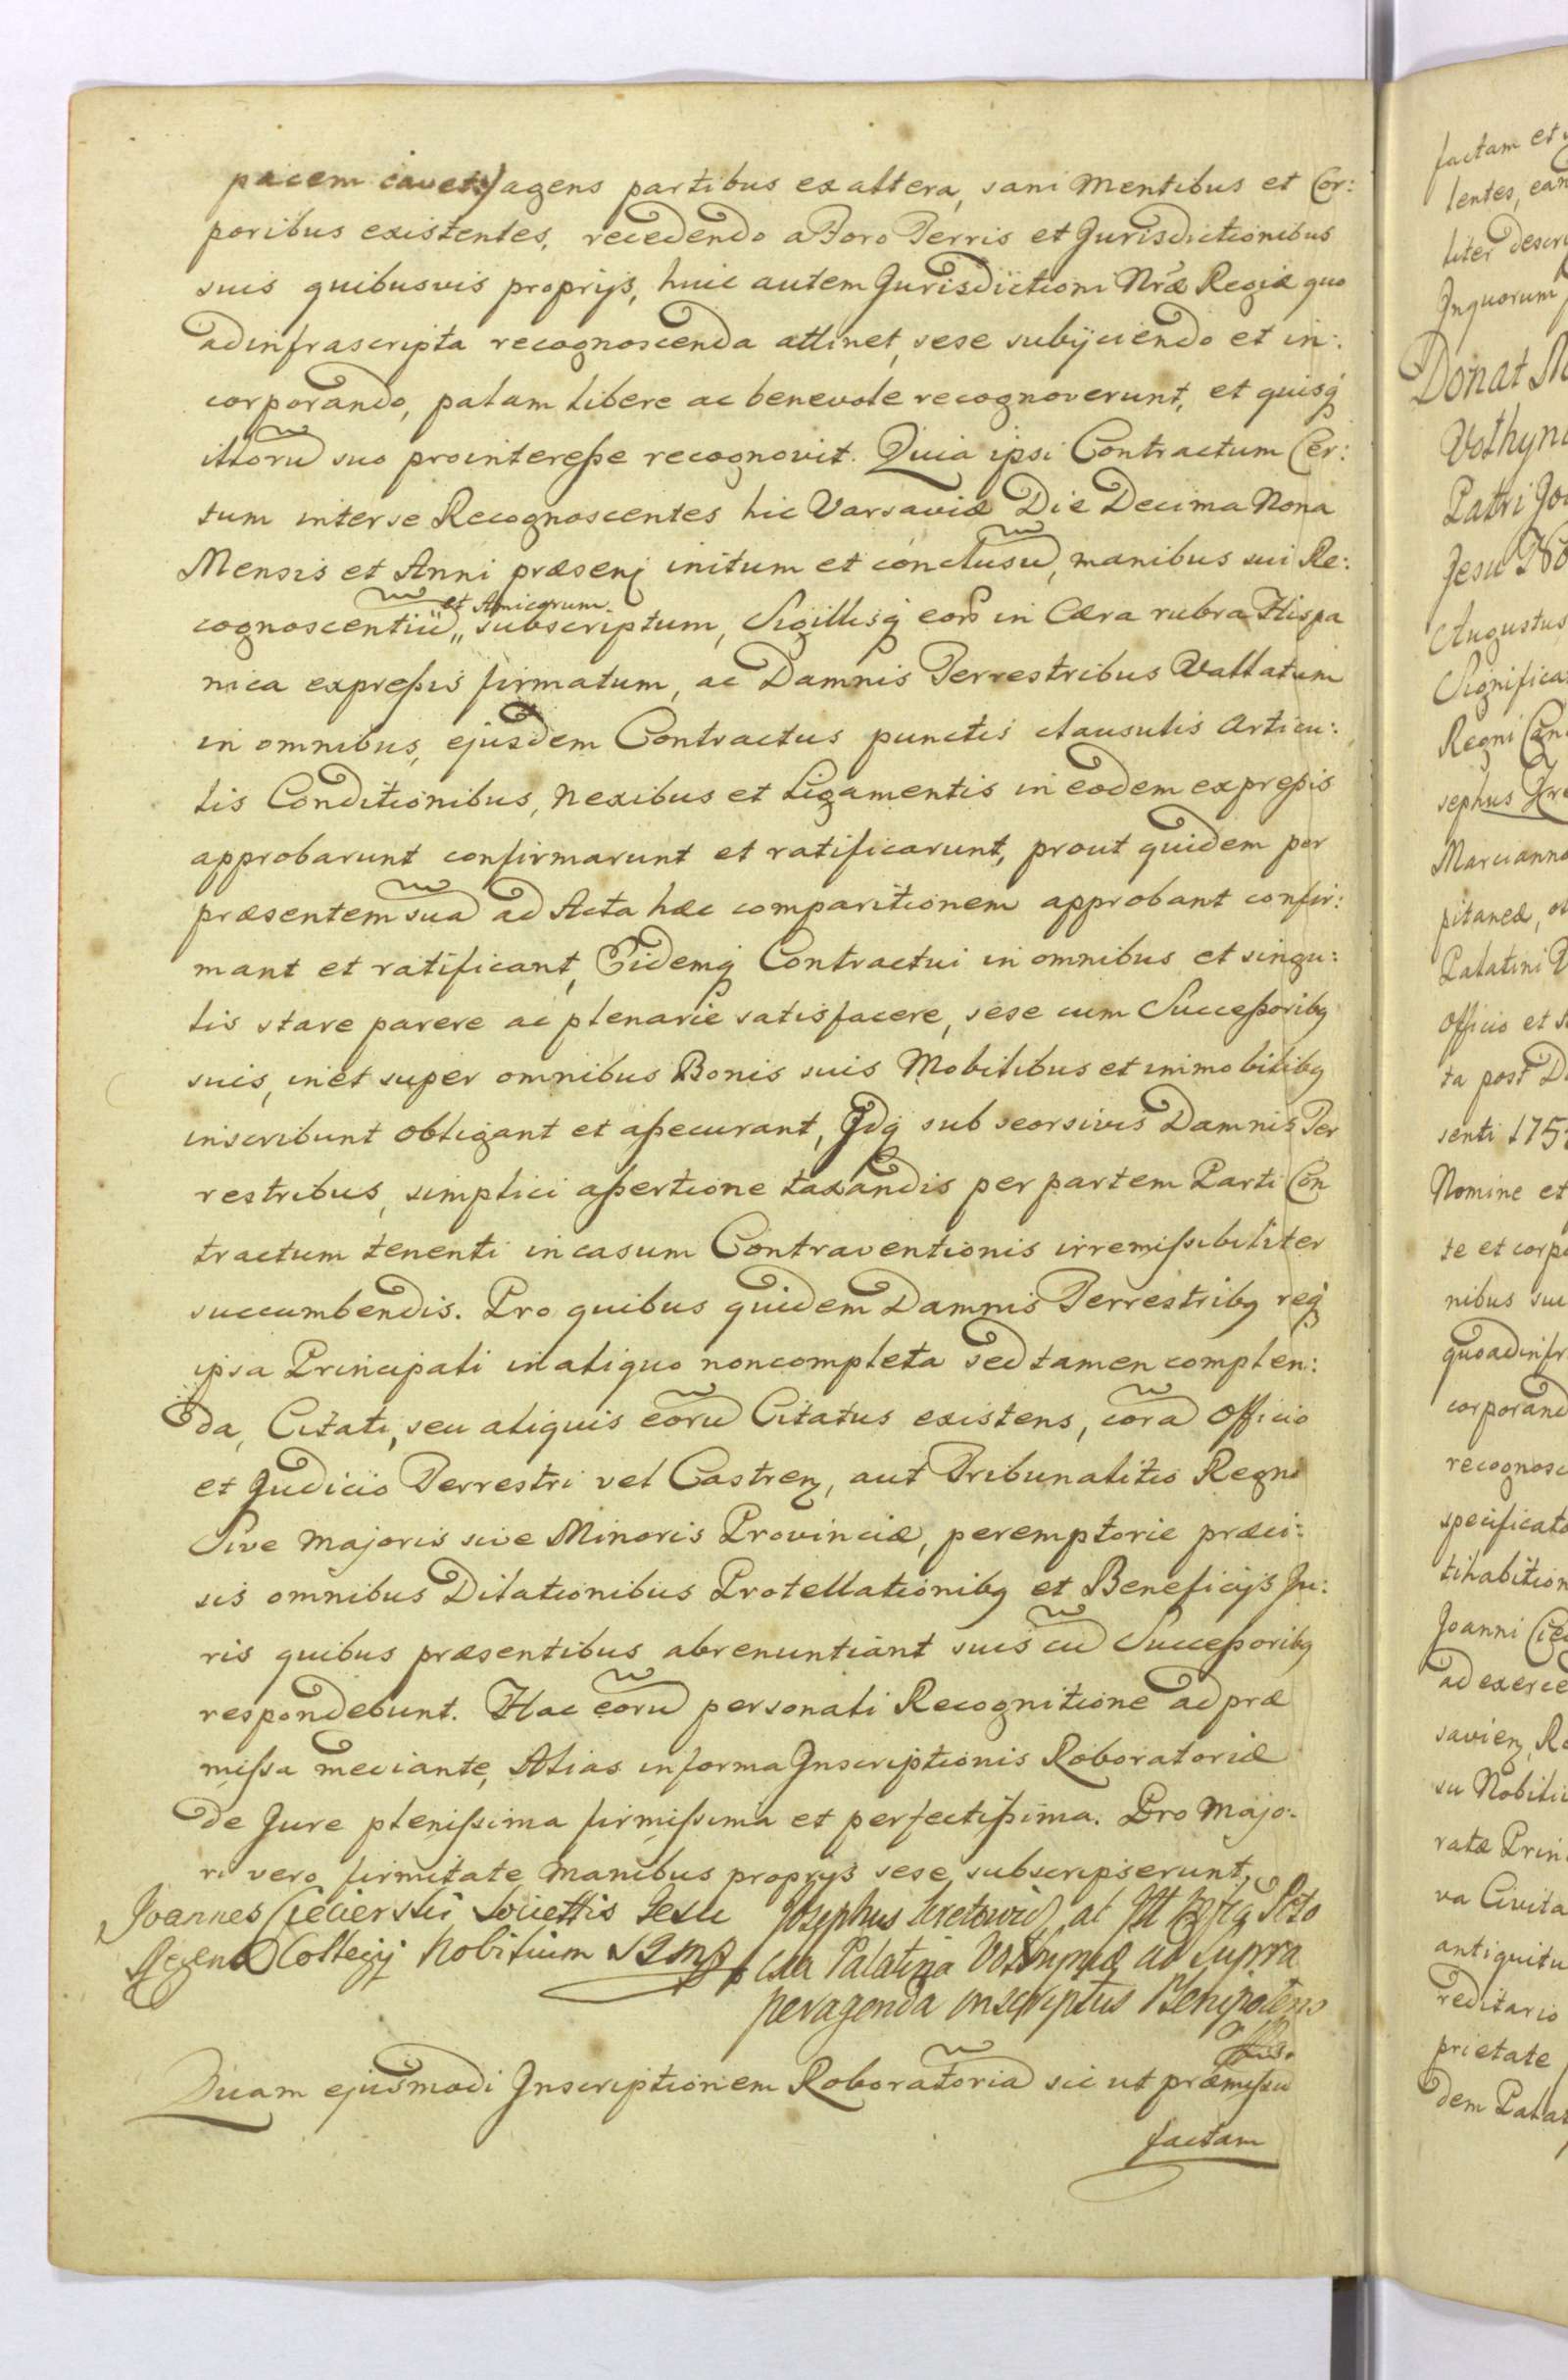 pacem cavet) agens partibus ex altera, sani Mentibus et Cor:
poribus existentes, recedendo a Foro Terris et Jurisdictionibus
suis quibusvis proprijs, huic autem Jurisdictioni Nræ Regiæ quo
ad infrascripta recognoscenda attinet, sese subijciendo et in:
corporando, palam libere ac benevole recognoverunt, et quisq
illorũ suo pro interesse recognovit. Quia ipsi Contractum Cer:
tum inter se Recognoscentes hic Varsaviæ Die Decima Nona
Mensis et Anni præsenj initum et conclusũ, manibus sui Re:
et Amicorum
cognoscentiũ,, subscriptum, Sigillisq eorũ in Cæra rubra Hispa
nica expressis firmatum, ac Damnis Terrestribus Vallatum
in omnibus, ejusdem Contractus punctis clausulis Articu:
lis Conditionibus, Nexibus et Ligamentis in eodem expressis
approbarunt confirmarunt et ratificarunt, prout quidem per
præsentem suã ad Acta hæc comparitionem approbant confir:
mant et ratificant, Eidemq Contractui in omnibus et singu:
lis stare parere ac plenarie satisfacere, sese cum Successoribq
suis, in et super omnibus Bonis suis Mobilibus et immobilibq
inscribunt obligant et assecurant, Idq sub seorsivis Damnis Ter
restribus, simplici assertione taxandis per partem Parti Con
tractum tenenti in casum Contraventionis irremissibiliter
succumbendis. Pro quibus quidem Damnis Terrestribq req
ipsa Principali in aliquo non completa sed tamen complen:
da, Citati, seu aliquis eorũ Citatus existens, corã Officio
et Judicio Terrestri vel Castren, aut Tribunalitio Regni
Sive Majoris sive Minoris Provinciæ, peremptorie præci:
sis omnibus Dilationibus Protellationibq et Beneficijs Ju:
ris quibus præsentibus abrenuntiant suis cũ Successoribq
respondebunt. Hac eorũ personali Recognitione ad præ
missa mediante, Alias in forma Inscriptionis Roboratoriæ
de Jure plenissima firmissima et perfectissima. Pro Majo:
ri vero firmitate Manibus proprys sese subscripserunt,
Joannes Ciecierski Societtis Jesu
Regens Collegij Nobilium
Josephus at
Palatina Volhyniæ ad supra
peragenda inscriptus Plenipotens
Quam ejusmodi Inscriptionem Roboratoriã sic ut præmissũ
factam
factam et
lentes, ean
liter descri
Inquorum
Donat M
Volhyni
Patri Jo
Jesu No
Augustus
Significa
Regni Can
sephus
Marianno
pitaneæ,
Palatini V
Officio et
ta post D
senti 175
Nomine et
te et corpo
nibus su
quo ad infr
corporand
recognosc
specificato
tihabition
Joanni Ciec
ad exerce
savien, R
su Nobili
ratæ Prin
va Civita
antiquitu
reditario
prietate
dem Palat